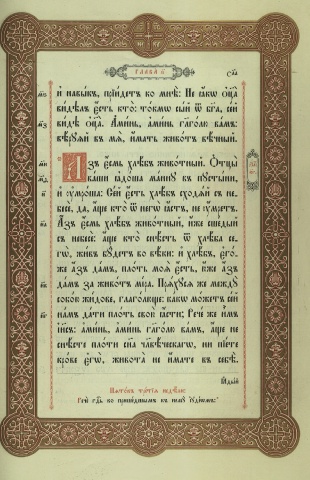 ГЛАВА ѕ҃
и҆ навы́къ, прїи́детъ ко мнѣ̀. Не ꙗ҆́кѡ ѻ҆ц҃а̀
ви́дѣлъ є҆́сть кто̀: то́кмѡ сы́й ѿ бг҃а, се́й
ви́дѣ ѻ҆ц҃а̀. А҆ми́нь, а҆ми́нь гл҃аго́лю ва́мъ:
вѣ́рꙋѧй въ мѧ̀, и҆́мать живо́тъ вѣ́чный.
А҆́зъ є҆́смь хлѣ́бъ живо́тный. Ѻ҆тцы̀
ва́ши ꙗ҆до́ша ма́ннꙋ въ пꙋсты́ни,
и҆ ᲂу҆мро́ша: Се́й є҆́сть хлѣ́бъ сходѧ́й съ не-
бесѐ, да, а҆́ще кто̀ ѿ негѡ̀ ꙗ҆́стъ, не ᲂу҆́мретъ.
А҆́зъ є҆́смь хлѣ́бъ живо́тный, и҆́же сше́дый
съ небесѐ: а҆́ще кто̀ снѣ́сть ѿ хлѣ́ба се-
гѡ̀, жи́въ бꙋ́детъ во вѣ́ки: и҆ хлѣ́бъ, є҆го́-
же а҆́зъ да́мъ, пло́ть моѧ̀ є҆́сть, ю҆́же а҆́зъ
да́мъ за живо́тъ мі́ра. Прѧ́хꙋсѧ же междꙋ̀
собо́ю жи́дове, глаго́люще: ка́кѡ мо́жетъ се́й
на́мъ да́ти пло́ть свою̀ ꙗ҆́сти; Рече́ же и҆̀мъ
і҆и҃съ: а҆ми́нь, а҆ми́нь глаго́лю ва́мъ, а҆́ще не
снѣ́сте пло́ти сн҃а чл҃вѣ́ческагѡ, ни пїе́те
кро́ве є҆гѡ̀, живота̀ не и҆́мате въ себѣ̀.
Ꙗ҆ды́й
Пѧто́къ тре́тїѧ недѣ́ли: